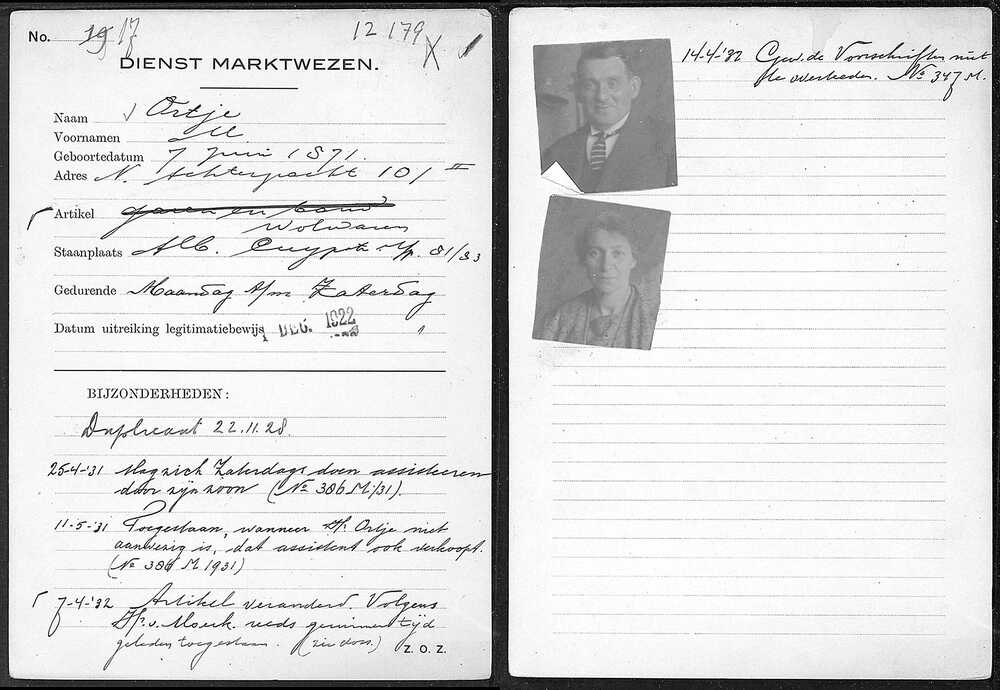 No. 19 17
12 179 X
DIENST MARKTWEZEN.
Naam Ortje
Voornamen M
Geboortedatum 7 Juni 1871.
Adres N. Achtergracht 101 II
Artikel garen en band
Wolwaren
Staanplaats Alb. Cuypstr. 81/83
Gedurende Maandag t/m Zaterdag
Datum uitreiking legitimatiebewijs DEC. 1922
BIJZONDERHEDEN:
Duplicaat 22.11.28.
25-4-'31 Mag zich Zaterdags doen assisteeren
door zijn zoon (No 386 M/31).
11-5-'31 Toegestaan, wanneer Hr. Ortje niet
aanwezig is, dat assistent ook verkoopt.
(No 386 M 1931)
7-4-'32 Artikel veranderd. Volgens
Hr. v. Moerk. reeds geruimen tijd
geleden toegestaan. (zie doss.) Z. O. Z.
14-4-'32 Gew. de Voorschriften niet
te overtreden. No 347 M.